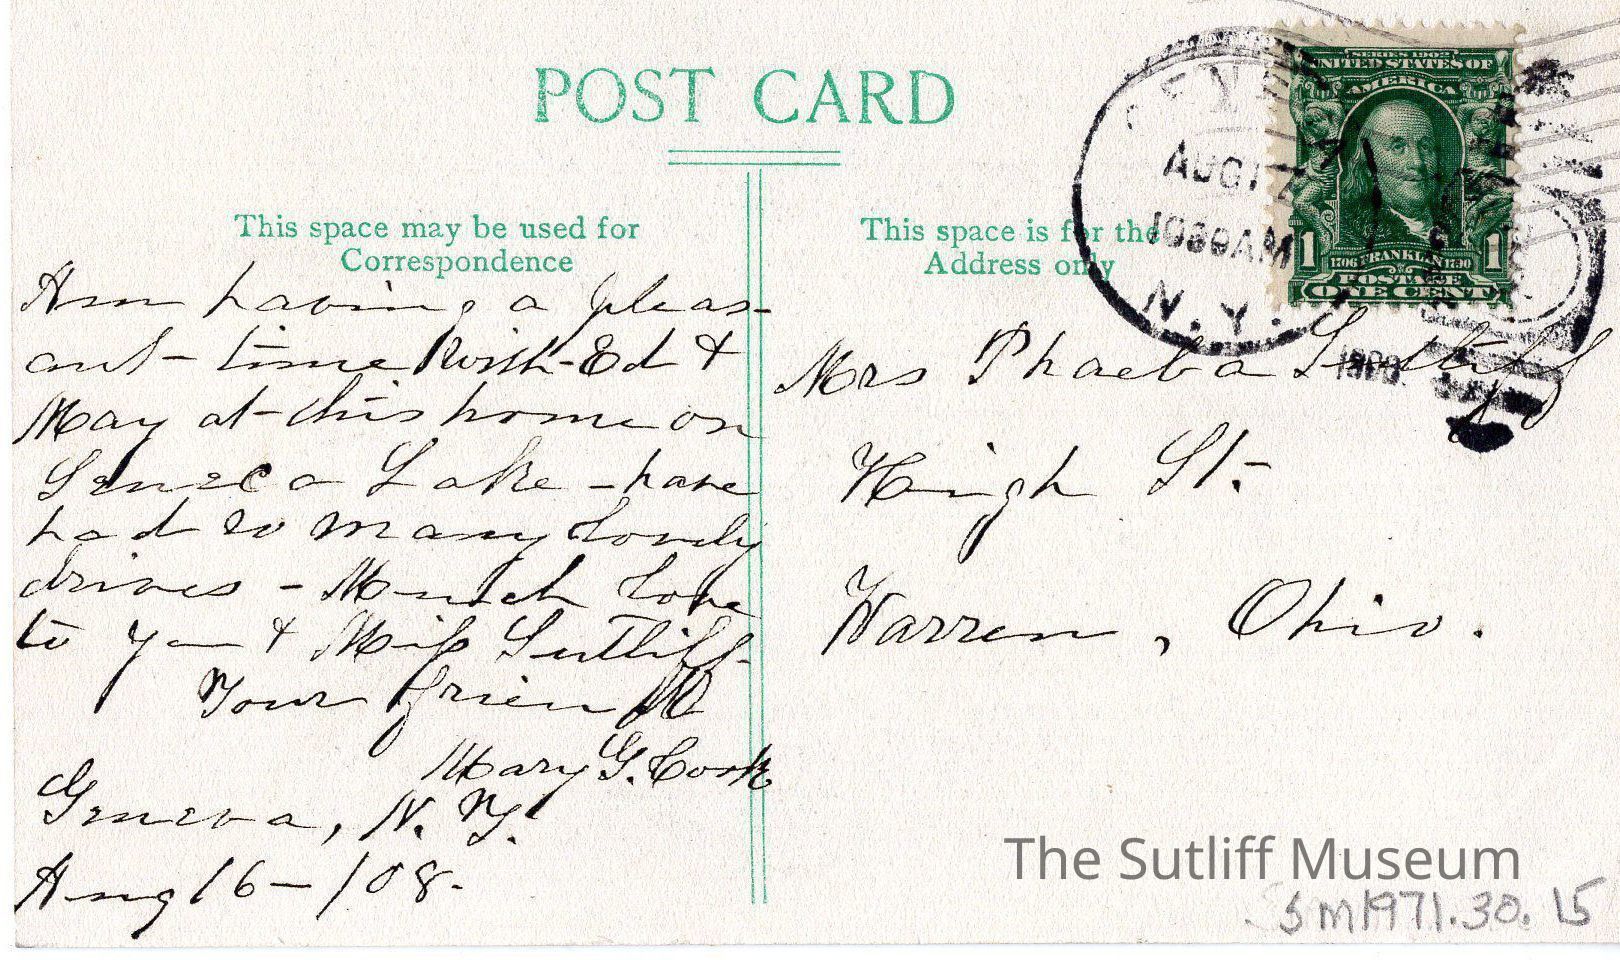 POST CARD
This space may be used for
Correspondence
This space is for the
Address only
Am having a pleas-
ant time with Ed &
May at this home on
Seneca Lake - have
had so many lovely
drives - Much love
to you & Miss Sutliff-
Your friend
Mary G. Cook
Geneva, N. Y.
Aug 16 - /08-
Mrs Phaeba Sutliff
High St.
Warren, Ohio.
AUG 17
1030AM
N.Y.
SERIES 1902
UNITED STATES OF
AMERICA
1706 FRANKLIN 1790
1 1
POSTAGE
ONE CENT
The Sutliff Museum
SM1971.30.15